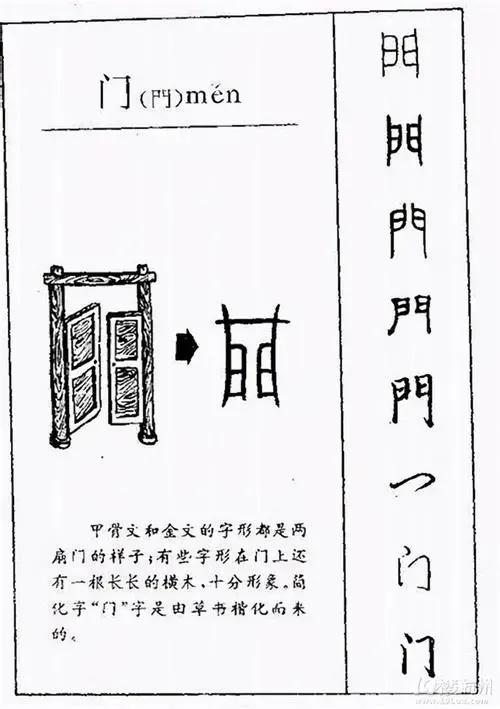 门(門)mén
甲骨文和金文的字形都是两
扇门的样子；有些字形在门上还
有一根长长的横木，十分形象。简
化字“门”字是由草书楷化而来
的。
門
門
門
門
門
门
门